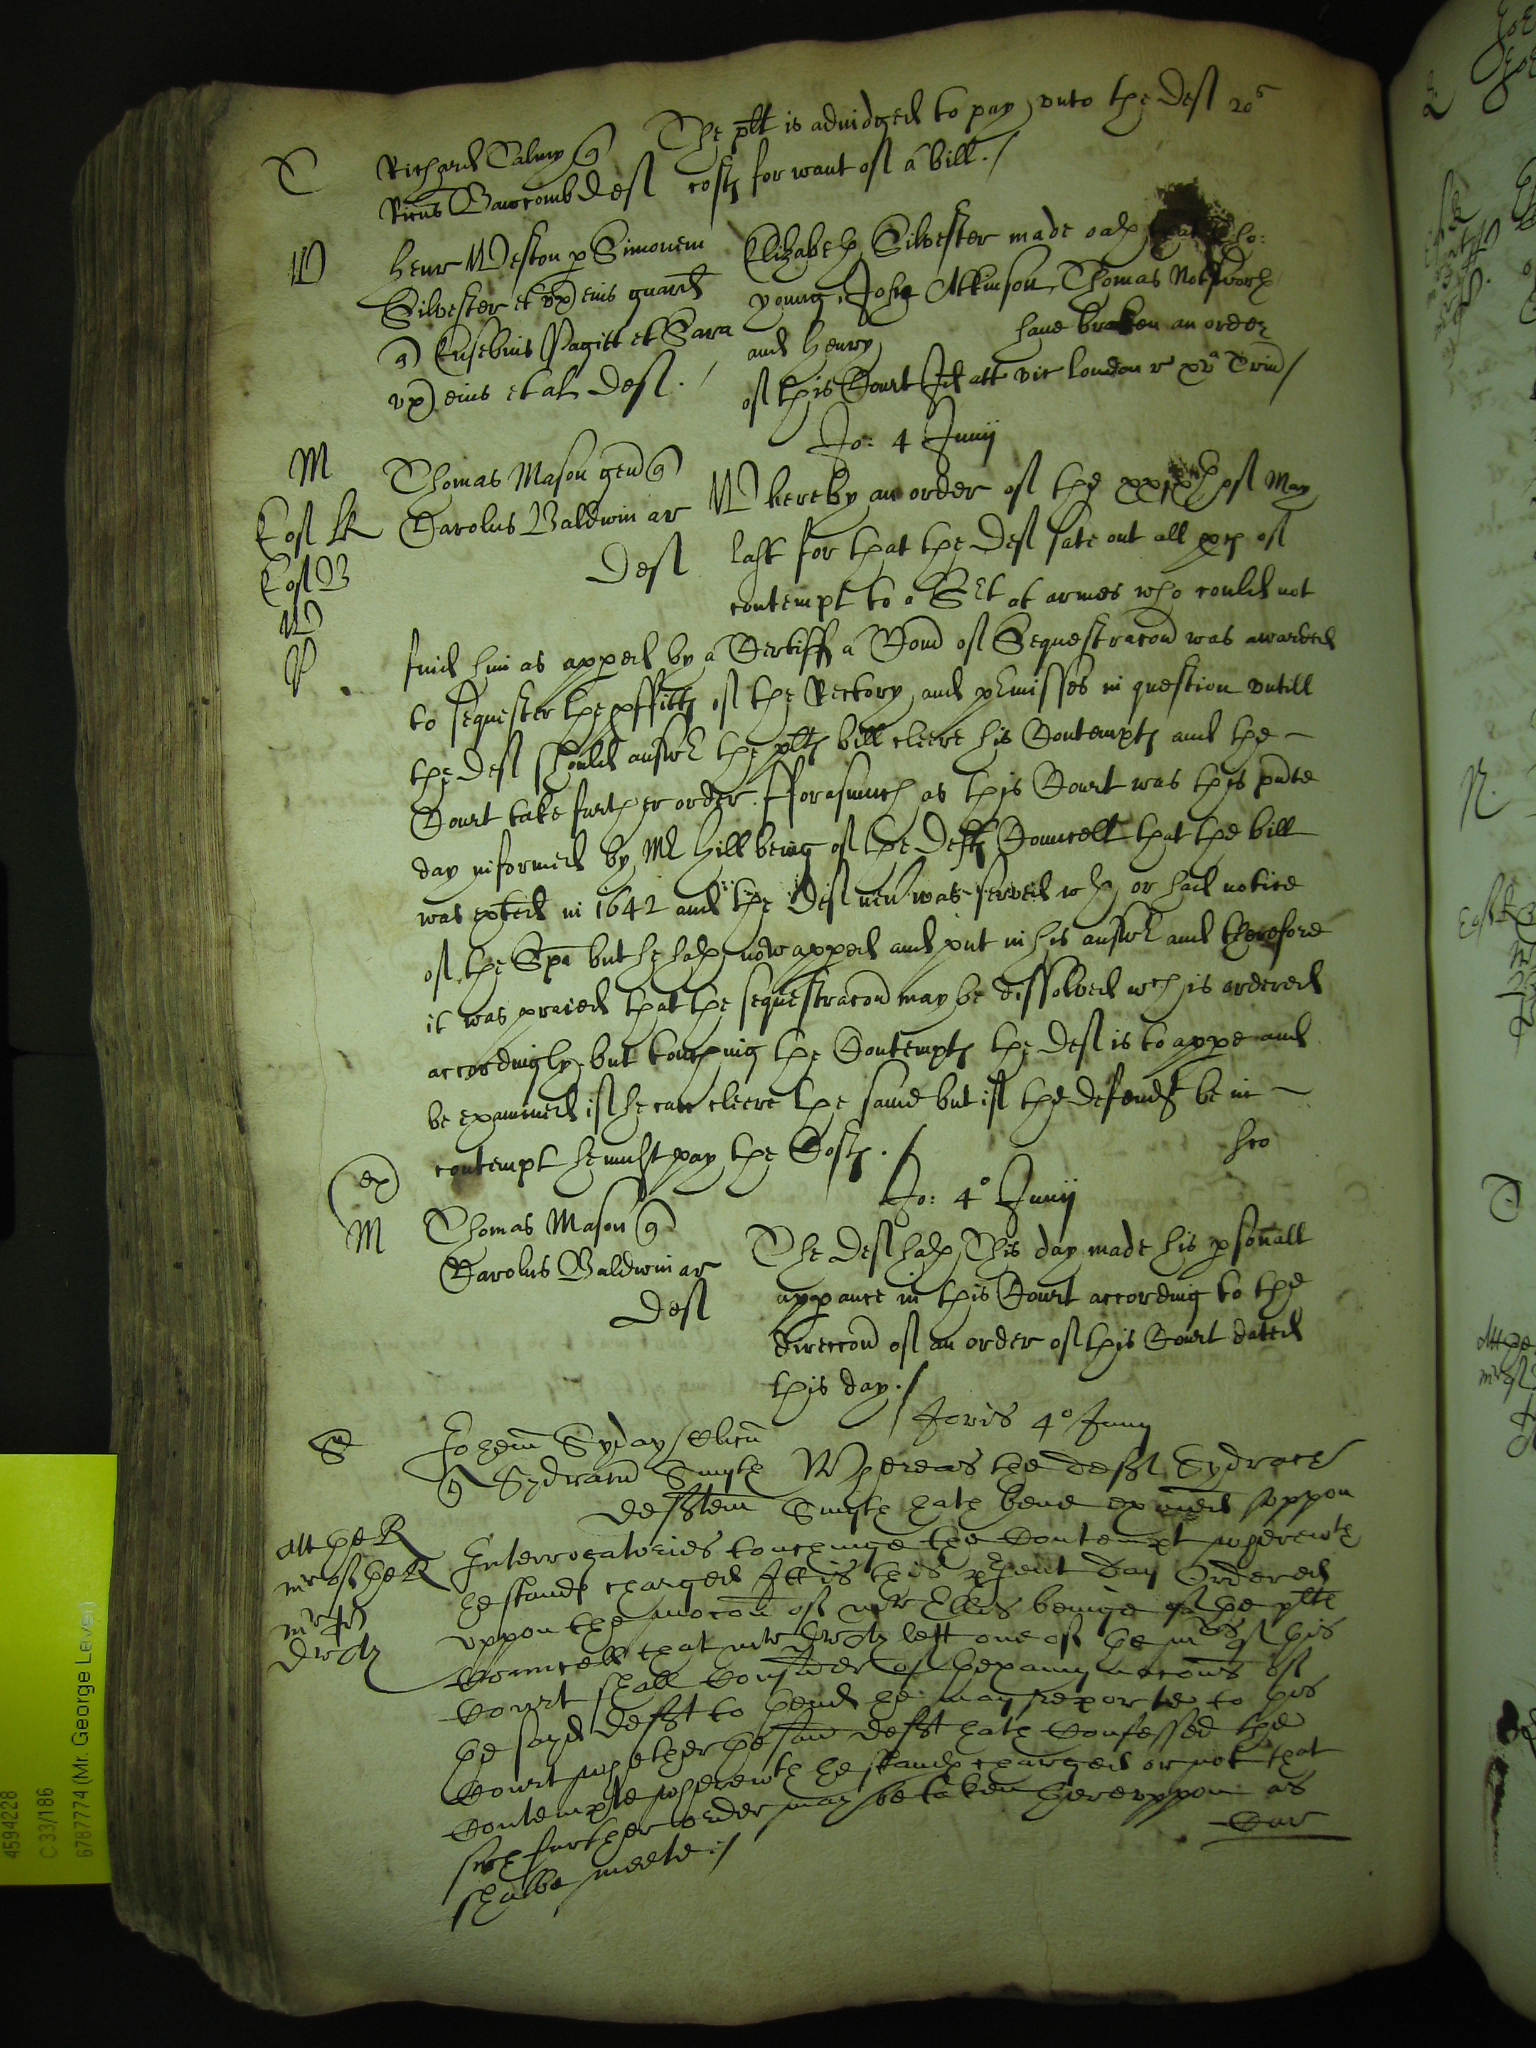 T Richard Talmy q The plt is adiudged to pay vnto the Def 20s
Ricus Bawcomb Def costs for want of a bill./
W Henr Weston p Simonem
Silvester et vx eius guard
q Eusebius Pagitt et Sara
vx eius et al Def./
Elizabeth Silvester made oath that Tho:
young, John Atkinson, Thomas
and Henry have broken an order
of this Court Jd att vic London r xv Trin/
Jo: 4 Junij
M Thomas Mason gen q
Carolus Baldwin ar
Def
Whereby an order of the xxixth of May
last for that the Def sate out all pces of
contempt to a Sert at armes who could not
find him as apped by a Certiff a Comd of Sequestracon was awarded
to sequester the pffitts of the Rectory and pmisses in question vntill
the Def should answr the plts bill cleere his Contempts and the
Court take further order. fforasmuch as this Court was this pnte
day informed by Mr Hill being of the Defts Councell that the bill
was exhted in 1642 and the Def nevr was served wth or had notice
of the Spa but he hath now apped and put in his answr and therefore
it was praied that the sequestracon may be dissolved wch is ordered
accordingly, but touching the Contempts the Def is to appe and
be examined if he can cleere the same but if the defendt be in
contempt he must pay the Costs./
ex
Jo: 4o Junij
M Thomas Mason q
Carolus Baldwin ar
Def
The Def hath This day made his psonall
appance in this Court according to the
direccon of an order of this Court dated
this day./
Jovis 4o Junij
S Johem Syday
q Sydracu Smyth
deftem
Whereas the deft Sydrach
Smyth hath bene exaied vppon
Interrogatories touchinge the Contempt wherewth
he stands charged It is this psent day Ordered
vppon the mocon of mr Ellis beinge of the plts
Councell that mr left one of the mrs of this
Court shall Consider of thexaminacons of
the sayd deft to thend he may reporte to this
Court whether the said deft hath Confessed the
Contempte wherewth he stands charged or not that
such further order may be taken herevppon as
shalbe meete:/
4594228
C 33/186
6787774 (Mr. George Lever)